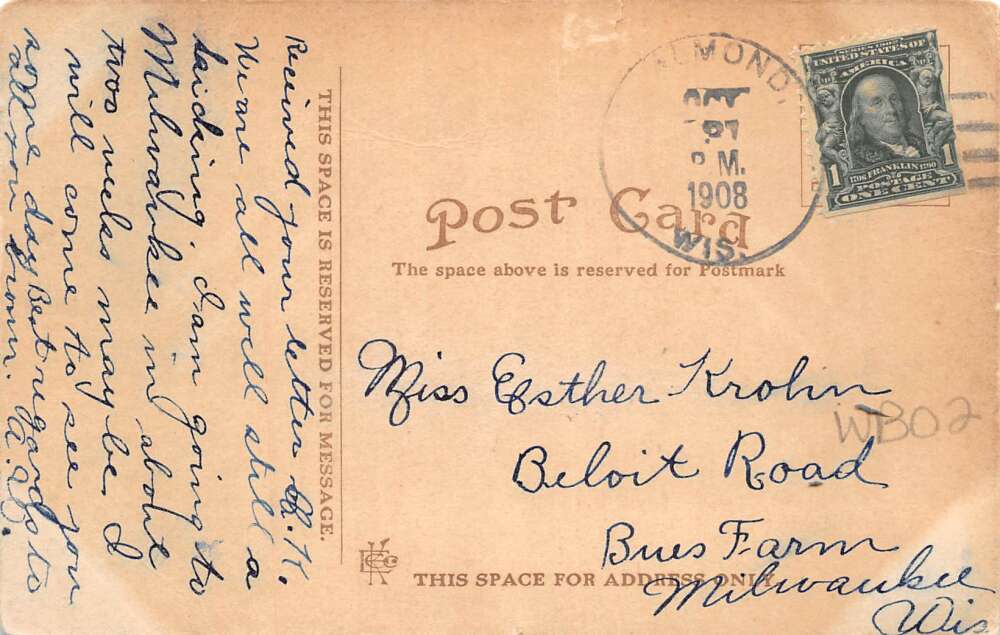 Received your letter O.K.
We are all well still a
kicking. I am going to
Milwaukee in about
two weeks may be I
will come to see you
some day Best regards to
all you known.
THIS SPACE IS RESERVED FOR MESSAGE.
ALMOND,
OCT
P.M.
1908
WIS.
SERIES 1902
UNITED STATES OF
AMERICA
1706 FRANKLIN 1790
1 1
POSTAGE
ONE CENT
Post Card
The space above is reserved for Postmark
Miss Esther Krohn
Beloit Road
Bues Farm
Milwaukee
Wis
WB02
THIS SPACE FOR ADDRESS ONLY.